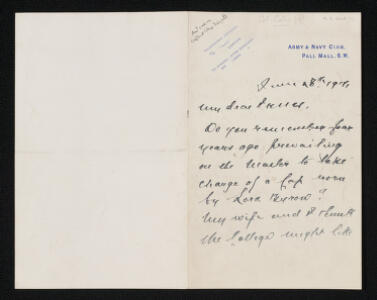 ARMY & NAVY CLUB,
PALL MALL, S.W.
June 28th
My dear
Do you remember four
years ago prevailing
on the Master to take
charge of a Cap worn
by Lord Byron?
My wife and I think
the College might like